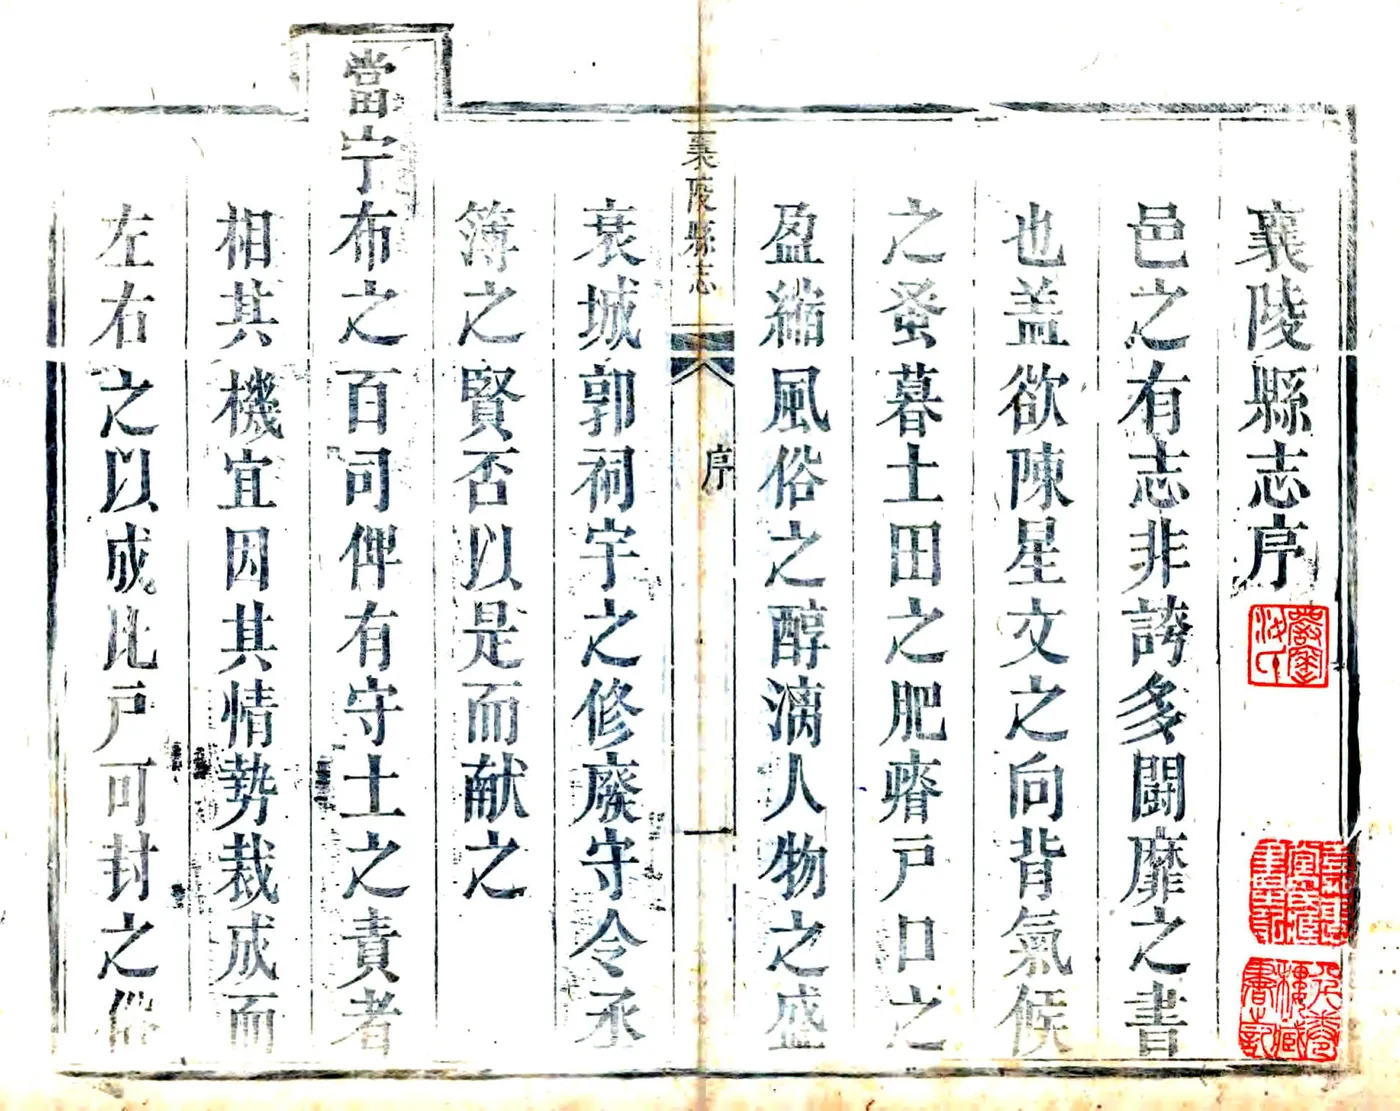 襄陵縣志序
邑之有志非誇多闘靡之書
也盖欲陳星文之向背氣候
之蚤暮土田之肥瘠戸口之
盈縮風俗之醇漓人物之盛
襄陵縣志
序
一
衰城郭祠宇之修廢守令丞
簿之賢否以是而献之
當宁布之百司俾有守土之責者
相其機宜因其情勢裁成而
左右之以成比戸可封之俗